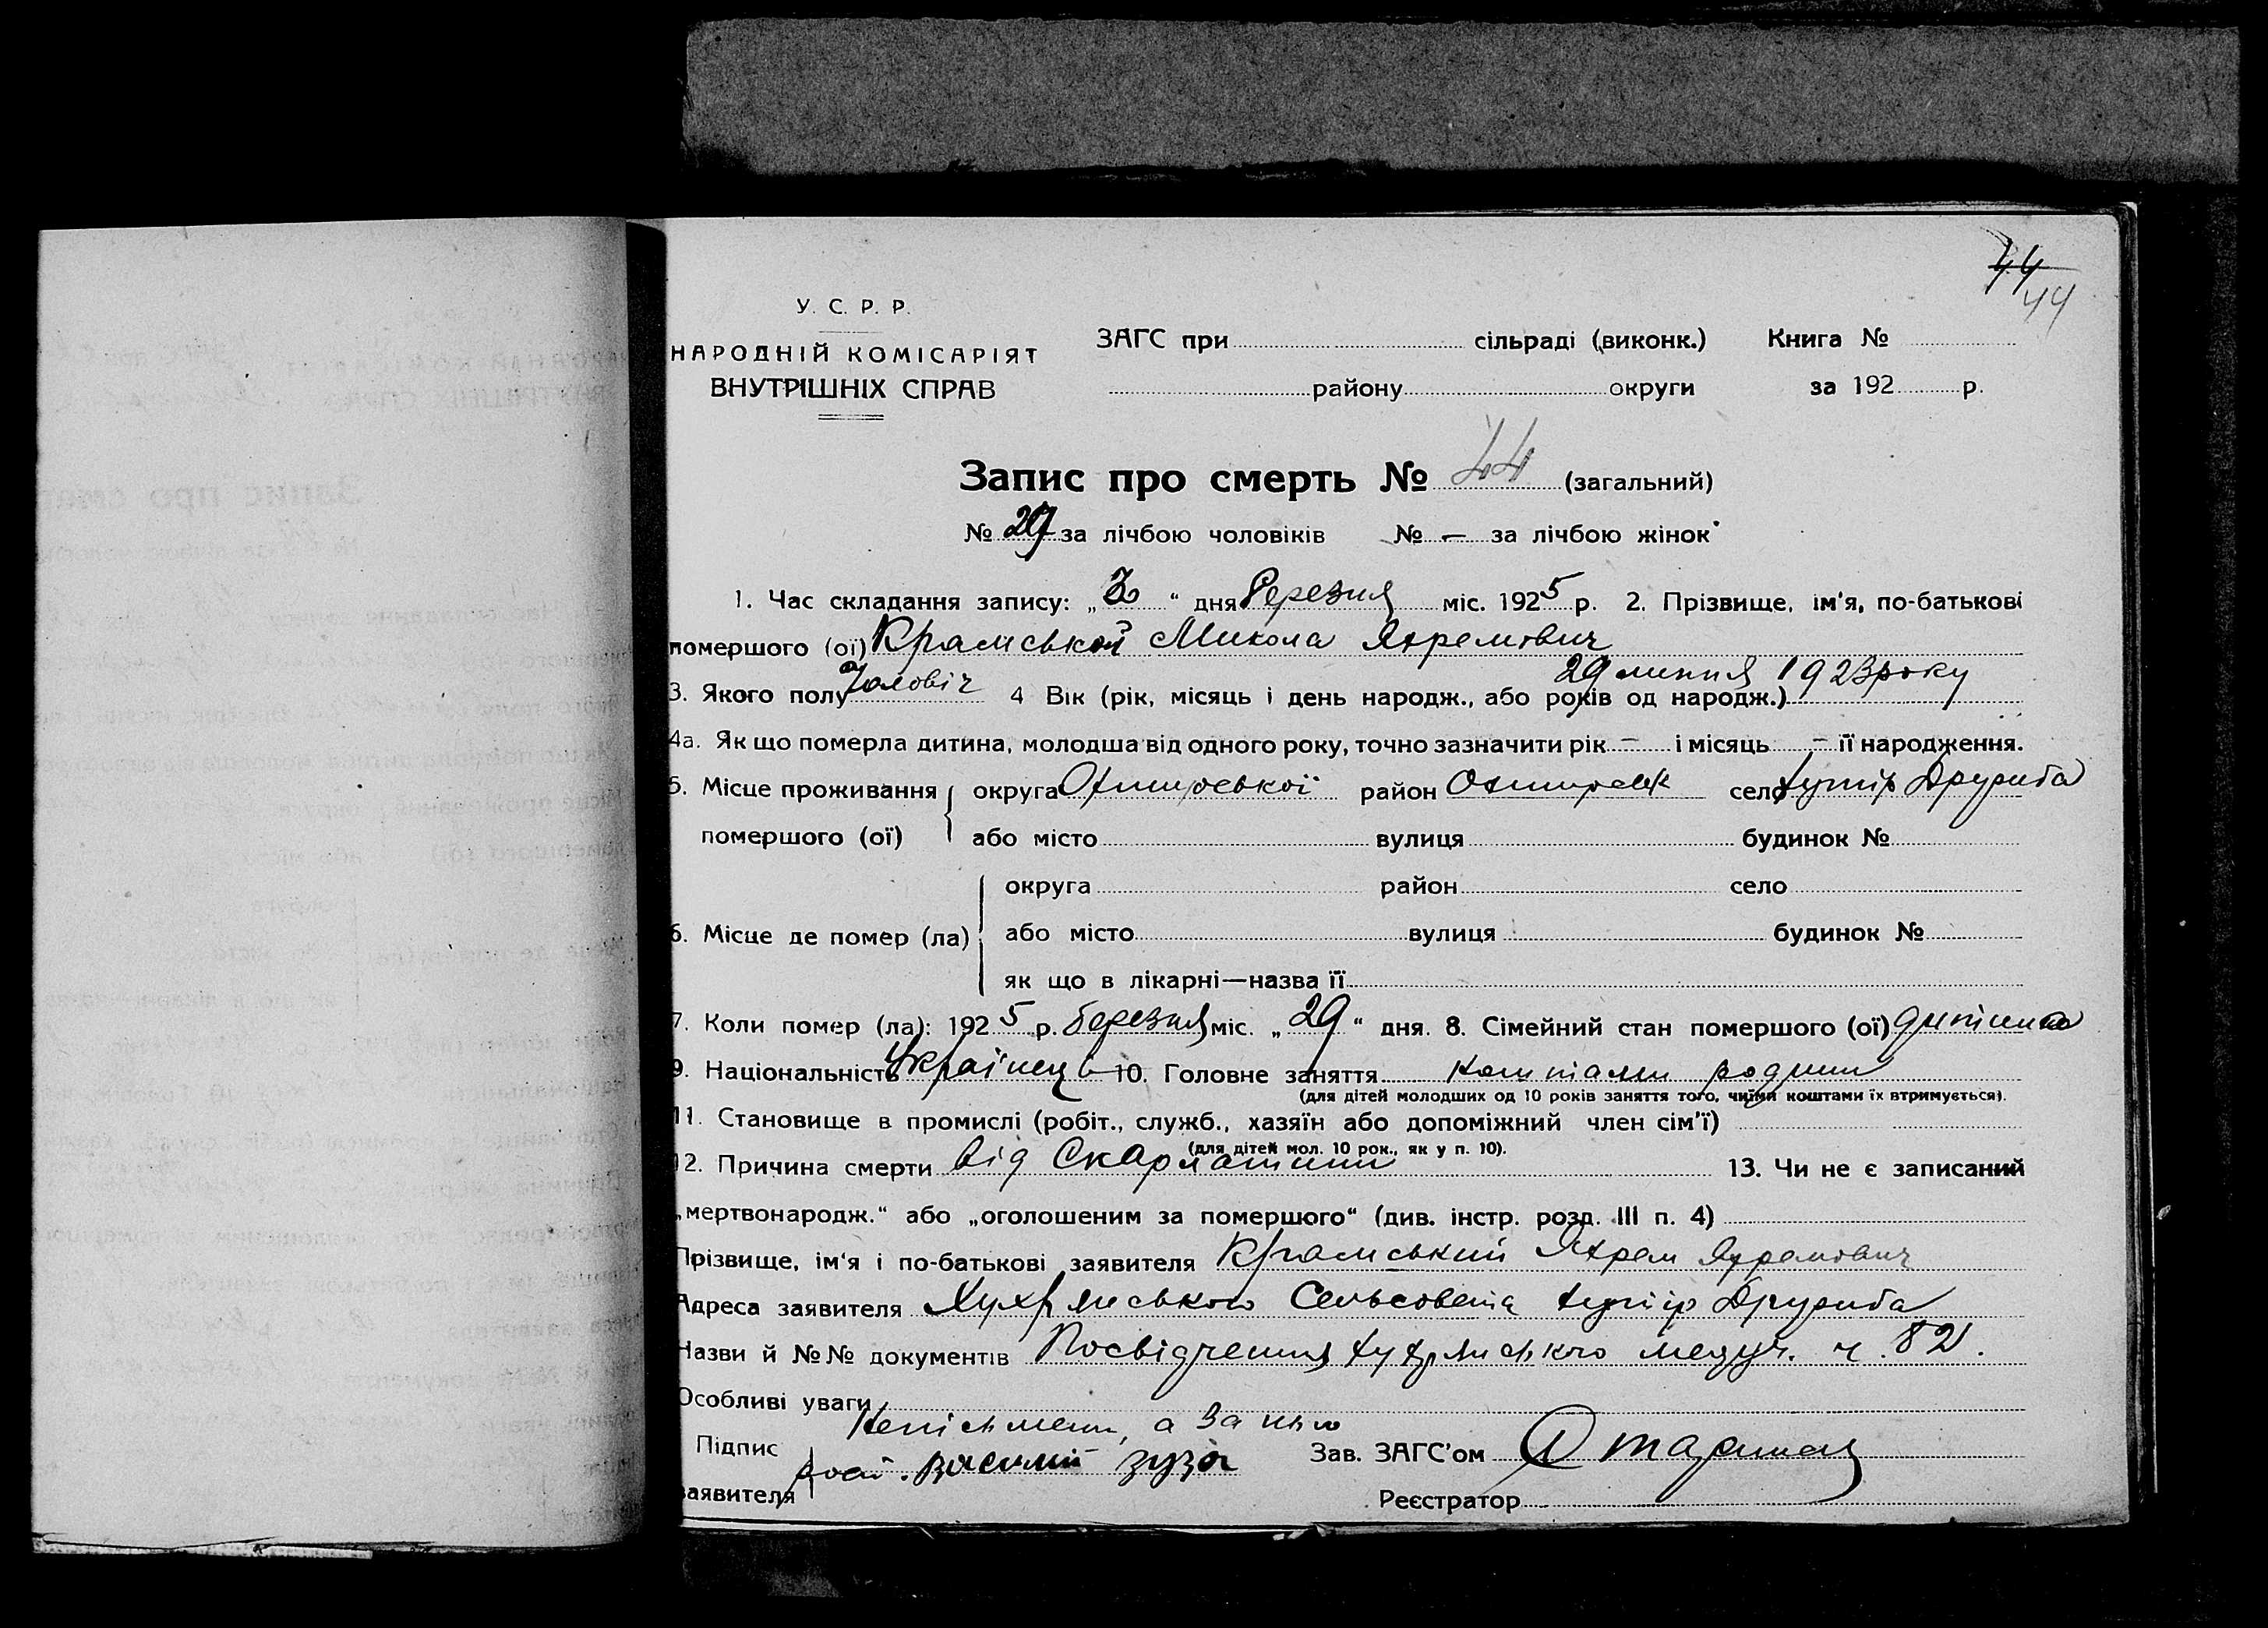 44
44
У. С. Р. Р.
НАРОДНІЙ КОМІСАРІЯТ
ВНУТРІШНІХ СПРАВ
ЗАГС при сільраді (виконк.) Книга №
району округи за 192 р.
Запис про смерть № 44 (загальний)
№ 29 за лічбою чоловіків № — за лічбою жінок
1. Час складання запису: „30“ дня Березня міс. 1925 р. 2. Прізвище, ім'я, по-батькові
помершого (ої) Крамський Микола Яхремович
3. Якого полу Чоловіч 4 Вік (рік, місяць і день народж., або років од народж.) 29 липня 1923 року
4а. Як що померла дитина, молодша від одного року, точно зазначити рік – і місяць – її народження.
5. Місце проживання округа Охтирської район Охтирськ село хутір Дружба
помершого (ої) або місто вулиця будинок №
округа район село
6. Місце де помер (ла) або місто вулиця будинок №
як що в лікарні—назва її
7. Коли помер (ла): 1925 р. березня міс. „29“ дня. 8. Сімейний стан помершого (ої) дитина
9. Національність Українець 10. Головне заняття коштами родини
(для дітей молодших од 10 років заняття того, чиїми коштами їх втримується).
11. Становище в промислі (робіт., служб., хазяїн або допоміжний член сім'ї)
(для дітей мол. 10 рок., як у п. 10).
12. Причина смерти від Скарлатини 13. Чи не є записаний
„мертвонародж.“ або „оголошеним за помершого“ (див. інстр. розд. III п. 4)
Прізвище, ім'я і по-батькові заявителя Крамський Яхрем Яхремович
Адреса заявителя Хухрянського Сельсовета хутір Дружба
Назви й №№ документів Посвідчення Хухрянського медуч. ч. 82.
Особливі уваги
Неписьмен, а за нього
Підпис
заявителя Василий Зузя Зав. ЗАГС'ом
Реєстратор